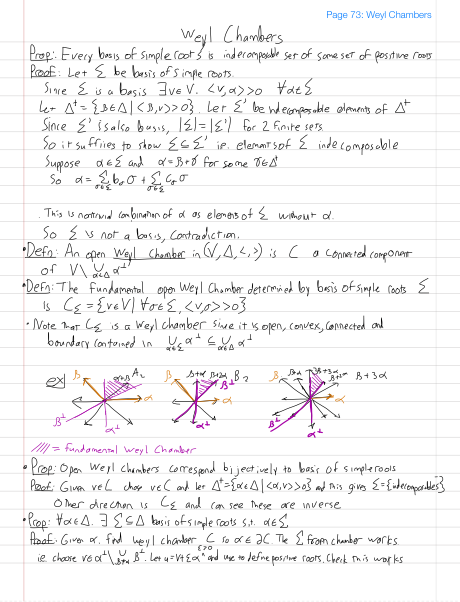 Page 73: Weyl Chambers
Weyl Chambers
Prop: Every basis of simple roots is indecomposable set of some set of positive roots
Proof: Let Σ be basis of simple roots.
Since Σ is a basis ∃ v∈V. <v,α> >0 ∀α∈Σ
Let Δ⁺ = {β∈Δ | <β,v> >0}. Let Σ' be indecomposable elements of Δ⁺
Since Σ' is also basis, |Σ|=|Σ'| for 2 finite sets
So it suffices to show Σ ⊆ Σ' ie. elements of Σ indecomposable
Suppose α∈Σ and α=β+γ for some γ∈Δ⁺
So α = Σ_{σ∈Σ} b_σ σ + Σ_{σ∈Σ} c_σ σ
. This is nontrivial combination of α as elements of Σ without α.
So Σ is not a basis, contradiction.
• Defn: An open Weyl Chamber in (V, Δ, <,>) is C a connected component
of V \ ∪_{α∈Δ} α^⊥
• Defn: The fundamental open Weyl Chamber determined by basis of simple roots Σ
is C_Σ = {v∈V | ∀σ∈Σ, <v,σ> >0}
• Note that C_Σ is a Weyl chamber since it is open, convex, connected and
boundary contained in ∪_{α∈Σ} α^⊥ ⊆ ∪_{α∈Δ} α^⊥
ex| β α+β A₂ α β^⊥ α^⊥ β β+α β+2α β^⊥ B₂ α α^⊥ β β+α β+2α β+3α α β^⊥ α^⊥
//// = fundamental Weyl Chamber
• Prop: Open Weyl chambers correspond bijectively to basis of simple roots
Proof: Given C chose v∈C and let Δ⁺={α∈Δ | <α,v> >0} and this gives Σ={indecomposables}
Other direction is C_Σ and can see these are inverse
• Prop: ∀α∈Δ. ∃ Σ⊆Δ basis of simple roots s.t. α∈Σ
Proof: Given α. find Weyl chamber C so α^⊥ ∂C. The Σ from chamber works
ie. choose v∈α^⊥ \ ∪ β^⊥. Let u=v+εα ε>0 and use to define positive roots. Check this works